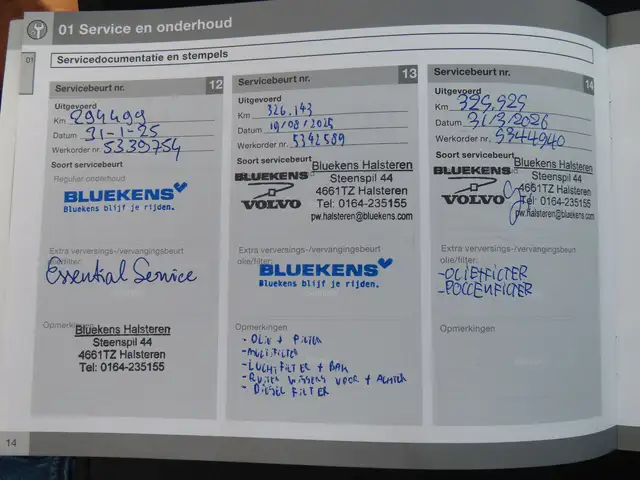 01 Service en onderhoud
01
Servicedocumentatie en stempels
Servicebeurt nr. 12
Uitgevoerd
Km 294499
Datum 31-1-25
Werkorder nr 5339754
Soort servicebeurt
Regulier onderhoud
BLUEKENS
Bluekens blijf je rijden.
Extra verversings-/vervangingsbeurt
olie/filter:
Essential Service
Opmerkingen
Bluekens Halsteren
Steenspil 44
4661TZ Halsteren
Tel: 0164-235155
Servicebeurt nr. 13
Uitgevoerd
Km 326.143
Datum 19/08/2025
Werkorder nr. 5342589
Soort servicebeurt
Bluekens Halsteren
Steenspil 44
4661TZ Halsteren
Tel: 0164-235155
pw.halsteren@bluekens.com
BLUEKENS
VOLVO
Extra verversings-/vervangingsbeurt
olie/filter:
BLUEKENS
Bluekens blijf je rijden.
Opmerkingen
- OLIE + FILTER
- LUCHTFILTER + BAK
- RUITENWISSERS VOOR + ACHTER
- DIESELFILTER
Servicebeurt nr. 14
Uitgevoerd
Km 329,929
Datum 31/3/2026
Werkorder nr. 5344940
Soort servicebeurt
Bluekens Halsteren
Steenspil 44
4661TZ Halsteren
Tel: 0164-235155
pw.halsteren@bluekens.com
BLUEKENS
VOLVO
Extra verversings-/vervangingsbeurt
olie/filter:
-OLIE+FILTER
-POLLENFILTER
Opmerkingen
14